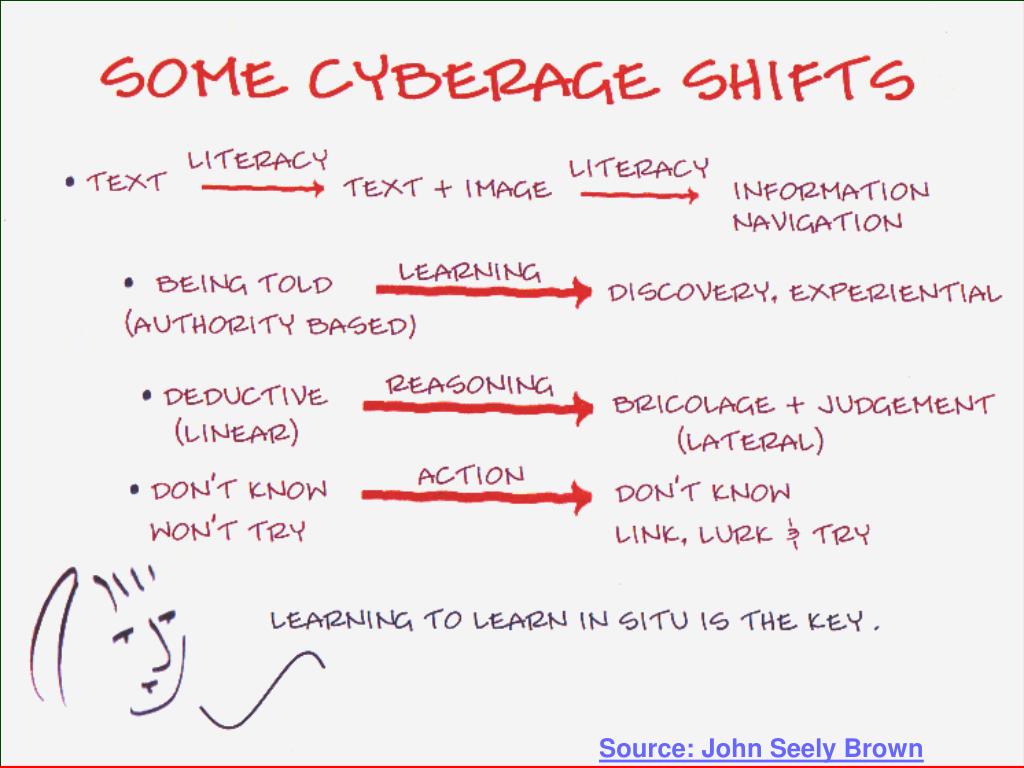 SOME CYBERAGE SHIFTS
• TEXT LITERACY TEXT + IMAGE LITERACY INFORMATION
NAVIGATION
• BEING TOLD LEARNING DISCOVERY, EXPERIENTIAL
(AUTHORITY BASED)
• DEDUCTIVE REASONING BRICOLAGE + JUDGEMENT
(LINEAR) (LATERAL)
• DON'T KNOW ACTION DON'T KNOW
WON'T TRY LINK, LURK & TRY
LEARNING TO LEARN IN SITU IS THE KEY.
Source: John Seely Brown